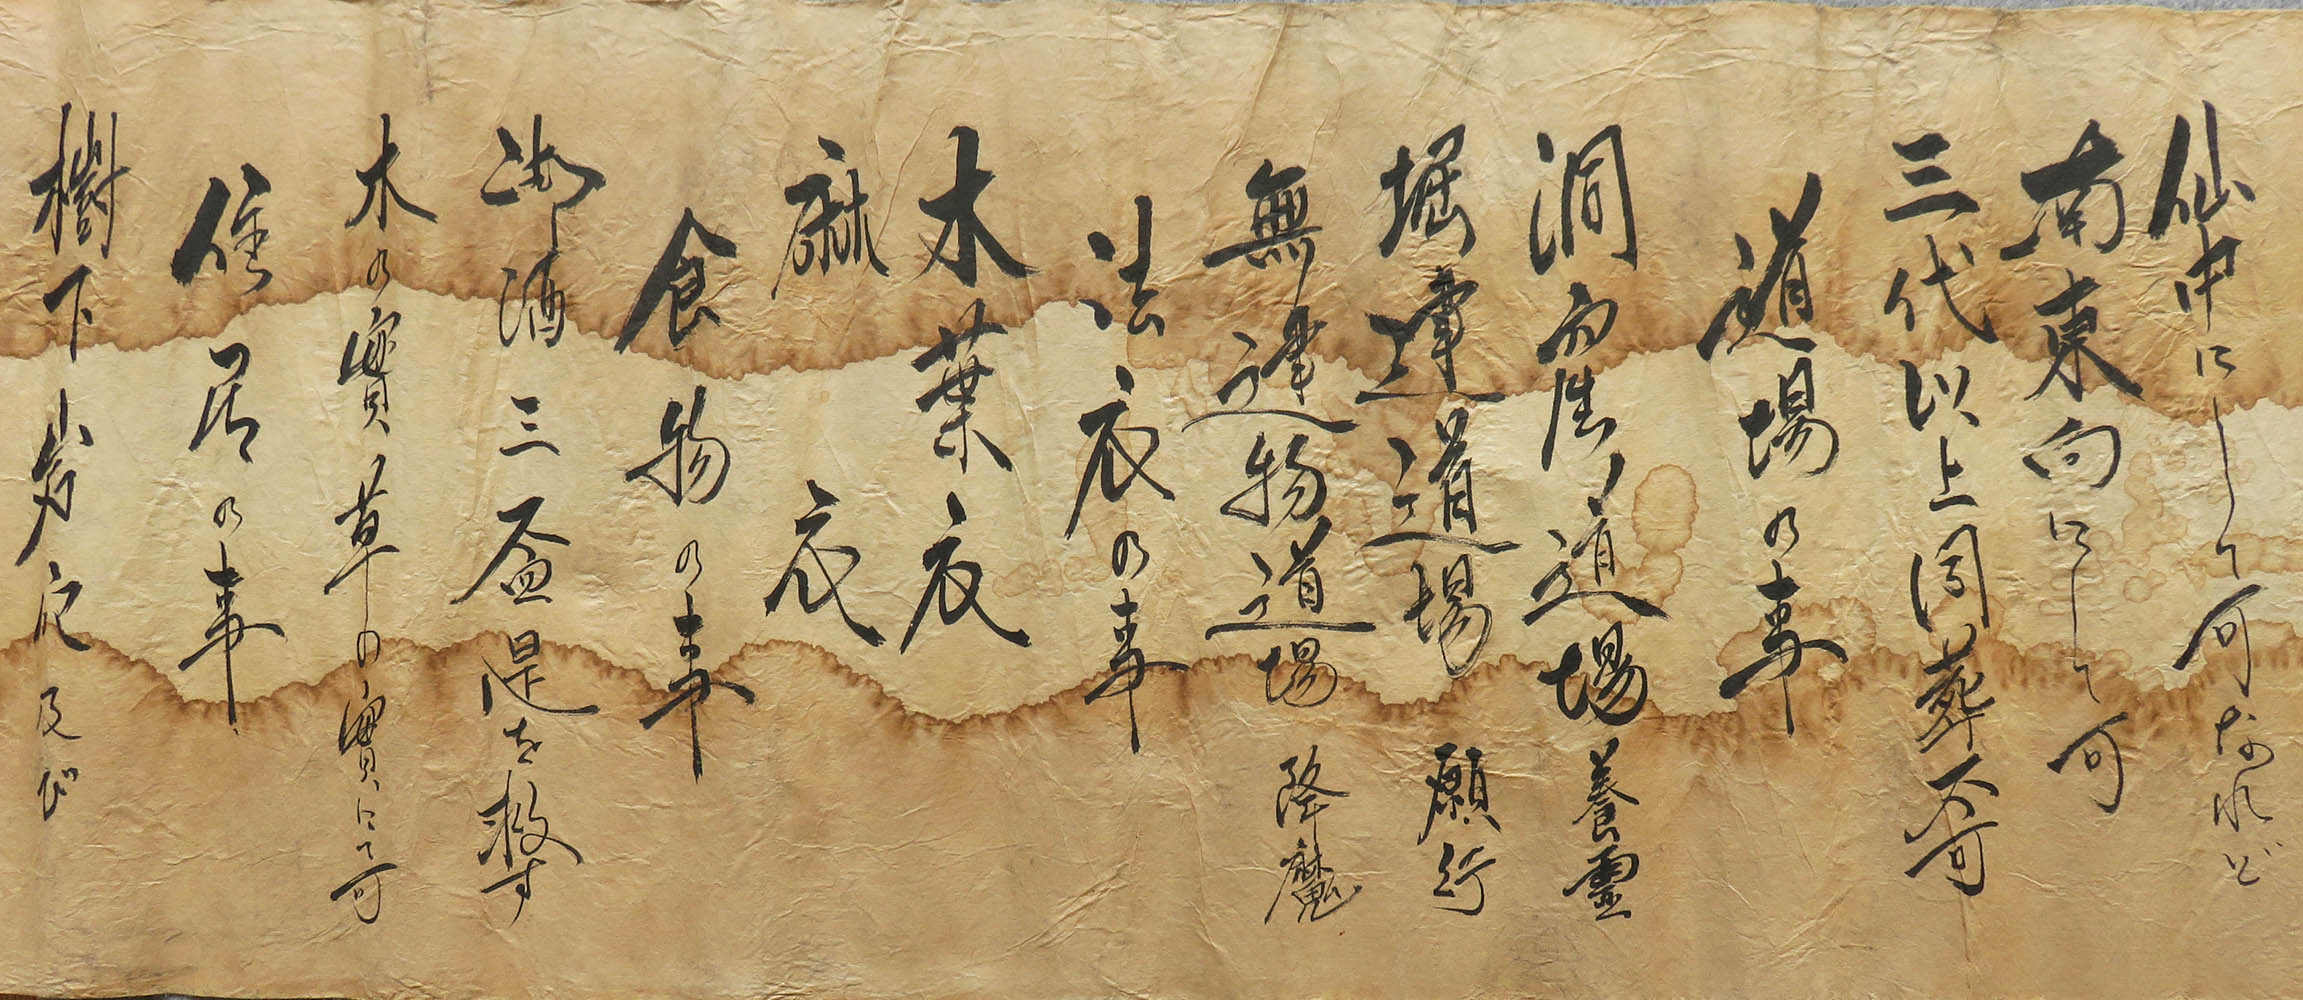 仙中にして可なれど
南東向にして可
三代以上同葬不可
道場の事
洞而崖ノ道場 養霊
堀建道場 願行
無建物道場 降魔
法衣の事
木葉衣
麻 衣
食物の事
御酒三盃是を救す
木の實草の實にて可
住居の事
樹下 及び